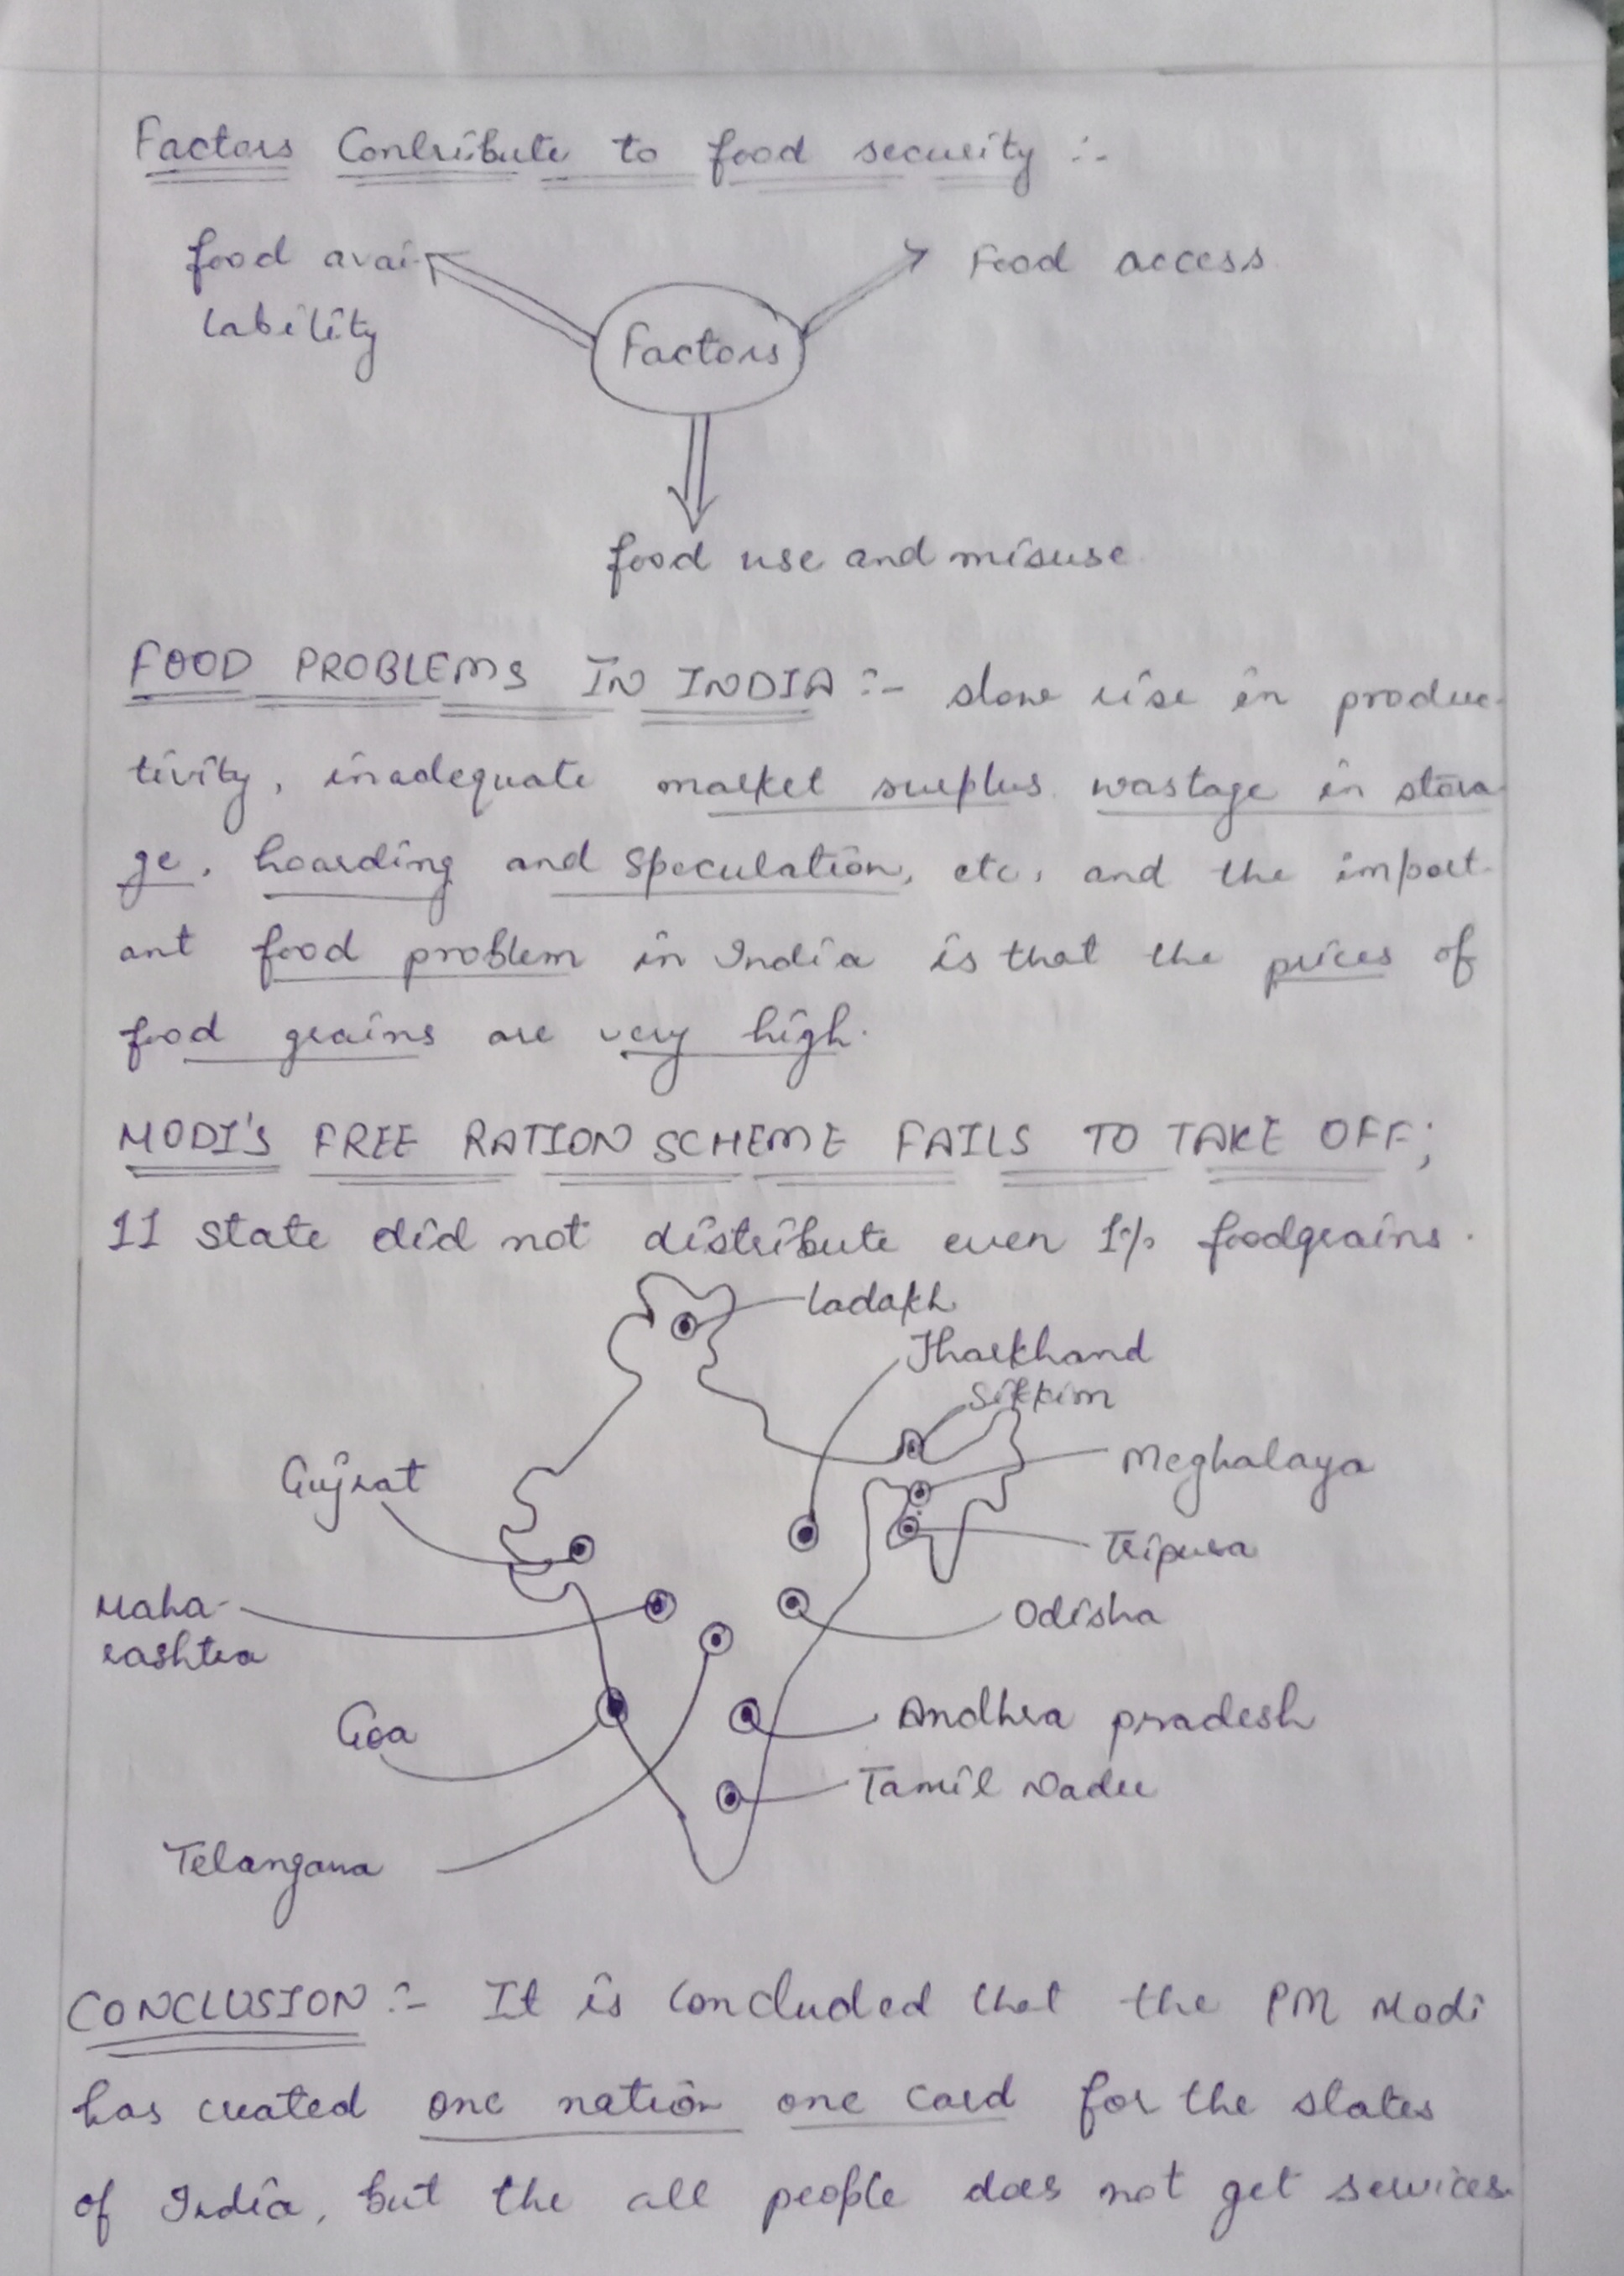 Factors Contribute to food security :-
food avai-
lability
Food access
Factors
food use and misuse
FOOD PROBLEMS IN INDIA :- slow rise in produc-
tivity, inadequate market surplus wastage in stora-
ge, hoarding and speculation, etc, and the import-
ant food problem in India is that the prices of
food grains are very high.
MODI'S FREE RATION SCHEME FAILS TO TAKE OFF;
11 state did not distribute even 1% foodgrains.
Ladakh
Jharkhand
Sikkim
Meghalaya
Gujrat
Tripura
Maha-
rashtra
Odisha
Goa
Andhra pradesh
Tamil Nadu
Telangana
CONCLUSION :- It is concluded that the PM Modi
has created one nation one card for the states
of India, but the all people does not get services.